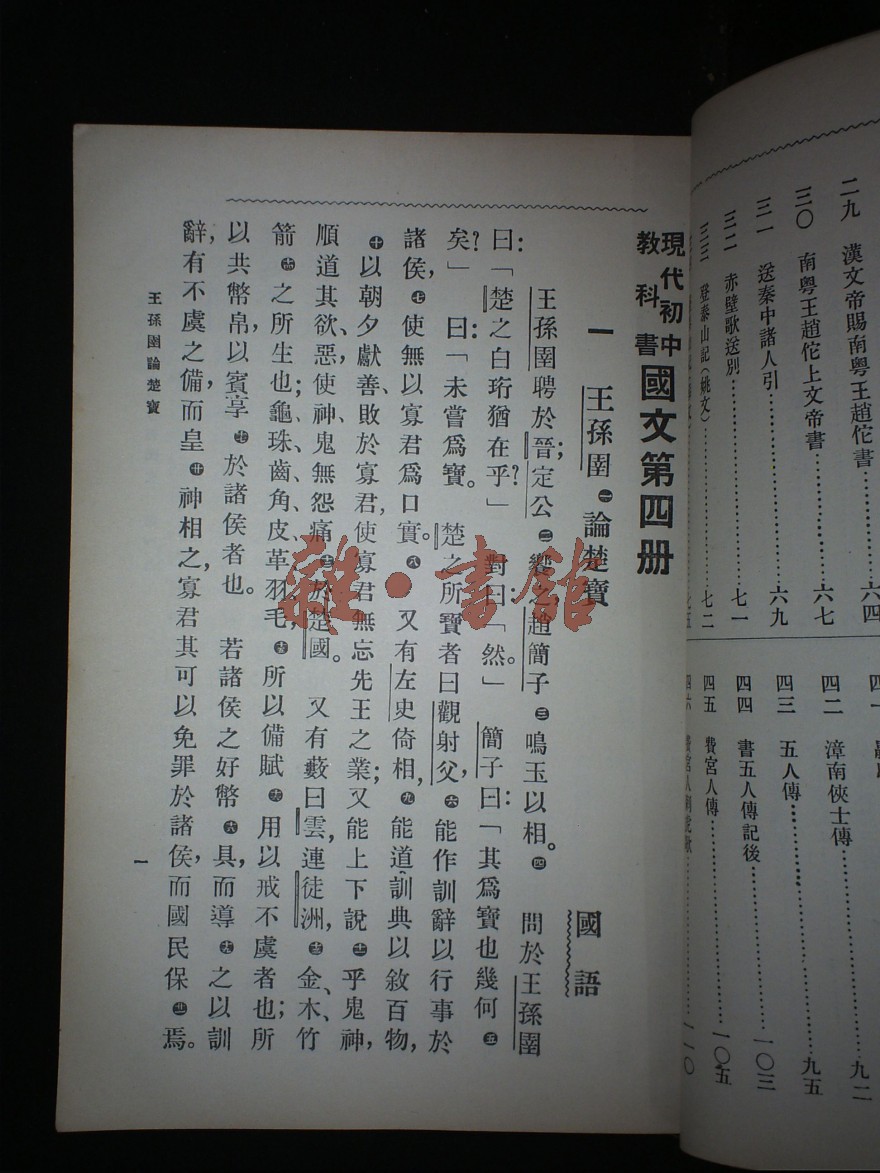 二九　漢文帝賜南粵王趙佗書……六四
三〇　南粵王趙佗上文帝書……六七
三一　送秦中諸人引……六九
三二　赤壁歌送別……七一
三三　登泰山記(姚文)……七二
四二　漳南俠士傳……九二
四三　五人傳……九五
四四　書五人傳記後……一〇三
四五　費宮人傳……一〇五
四六　……一一〇
現代初中教科書 國文第四册
一　王孫圉㊀論楚寶　國語
王孫圉聘於晉；定公㊁饗之，趙簡子㊂鳴玉以相。㊃　問於王孫圉
曰：「楚之白珩猶在乎？」　對曰：「然。」　簡子曰：「其爲寶也幾何㊄
矣？」　曰：「未嘗爲寶。　楚之所寶者曰觀射父，㊅能作訓辭以行事於
諸侯，㊆使無以寡君爲口實。㊇　又有左史倚相，㊈能道訓典以敘百物，
㊉以朝夕獻善、敗於寡君，使寡君無忘先王之業；又能上下說㊉㊀乎鬼神，
順道其欲、惡，使神鬼無怨痛㊉㊁於楚國。　又有藪曰雲，連徒洲，㊉㊂金、木、竹
箭㊉㊃之所生也；龜、珠、齒、角、皮、革、羽、毛，㊉㊄所以備賦㊉㊅用以戒不虞者也；所
以共幣帛，以賓享㊉㊆於諸侯者也。　若諸侯之好幣㊉㊇具，而導㊉㊈之以訓
辭，有不虞之備，而皇㊁㊉神相之，寡君其可以免罪於諸侯，而國民保㊁㊀焉。
王孫圉論楚寶
一
雜·書館